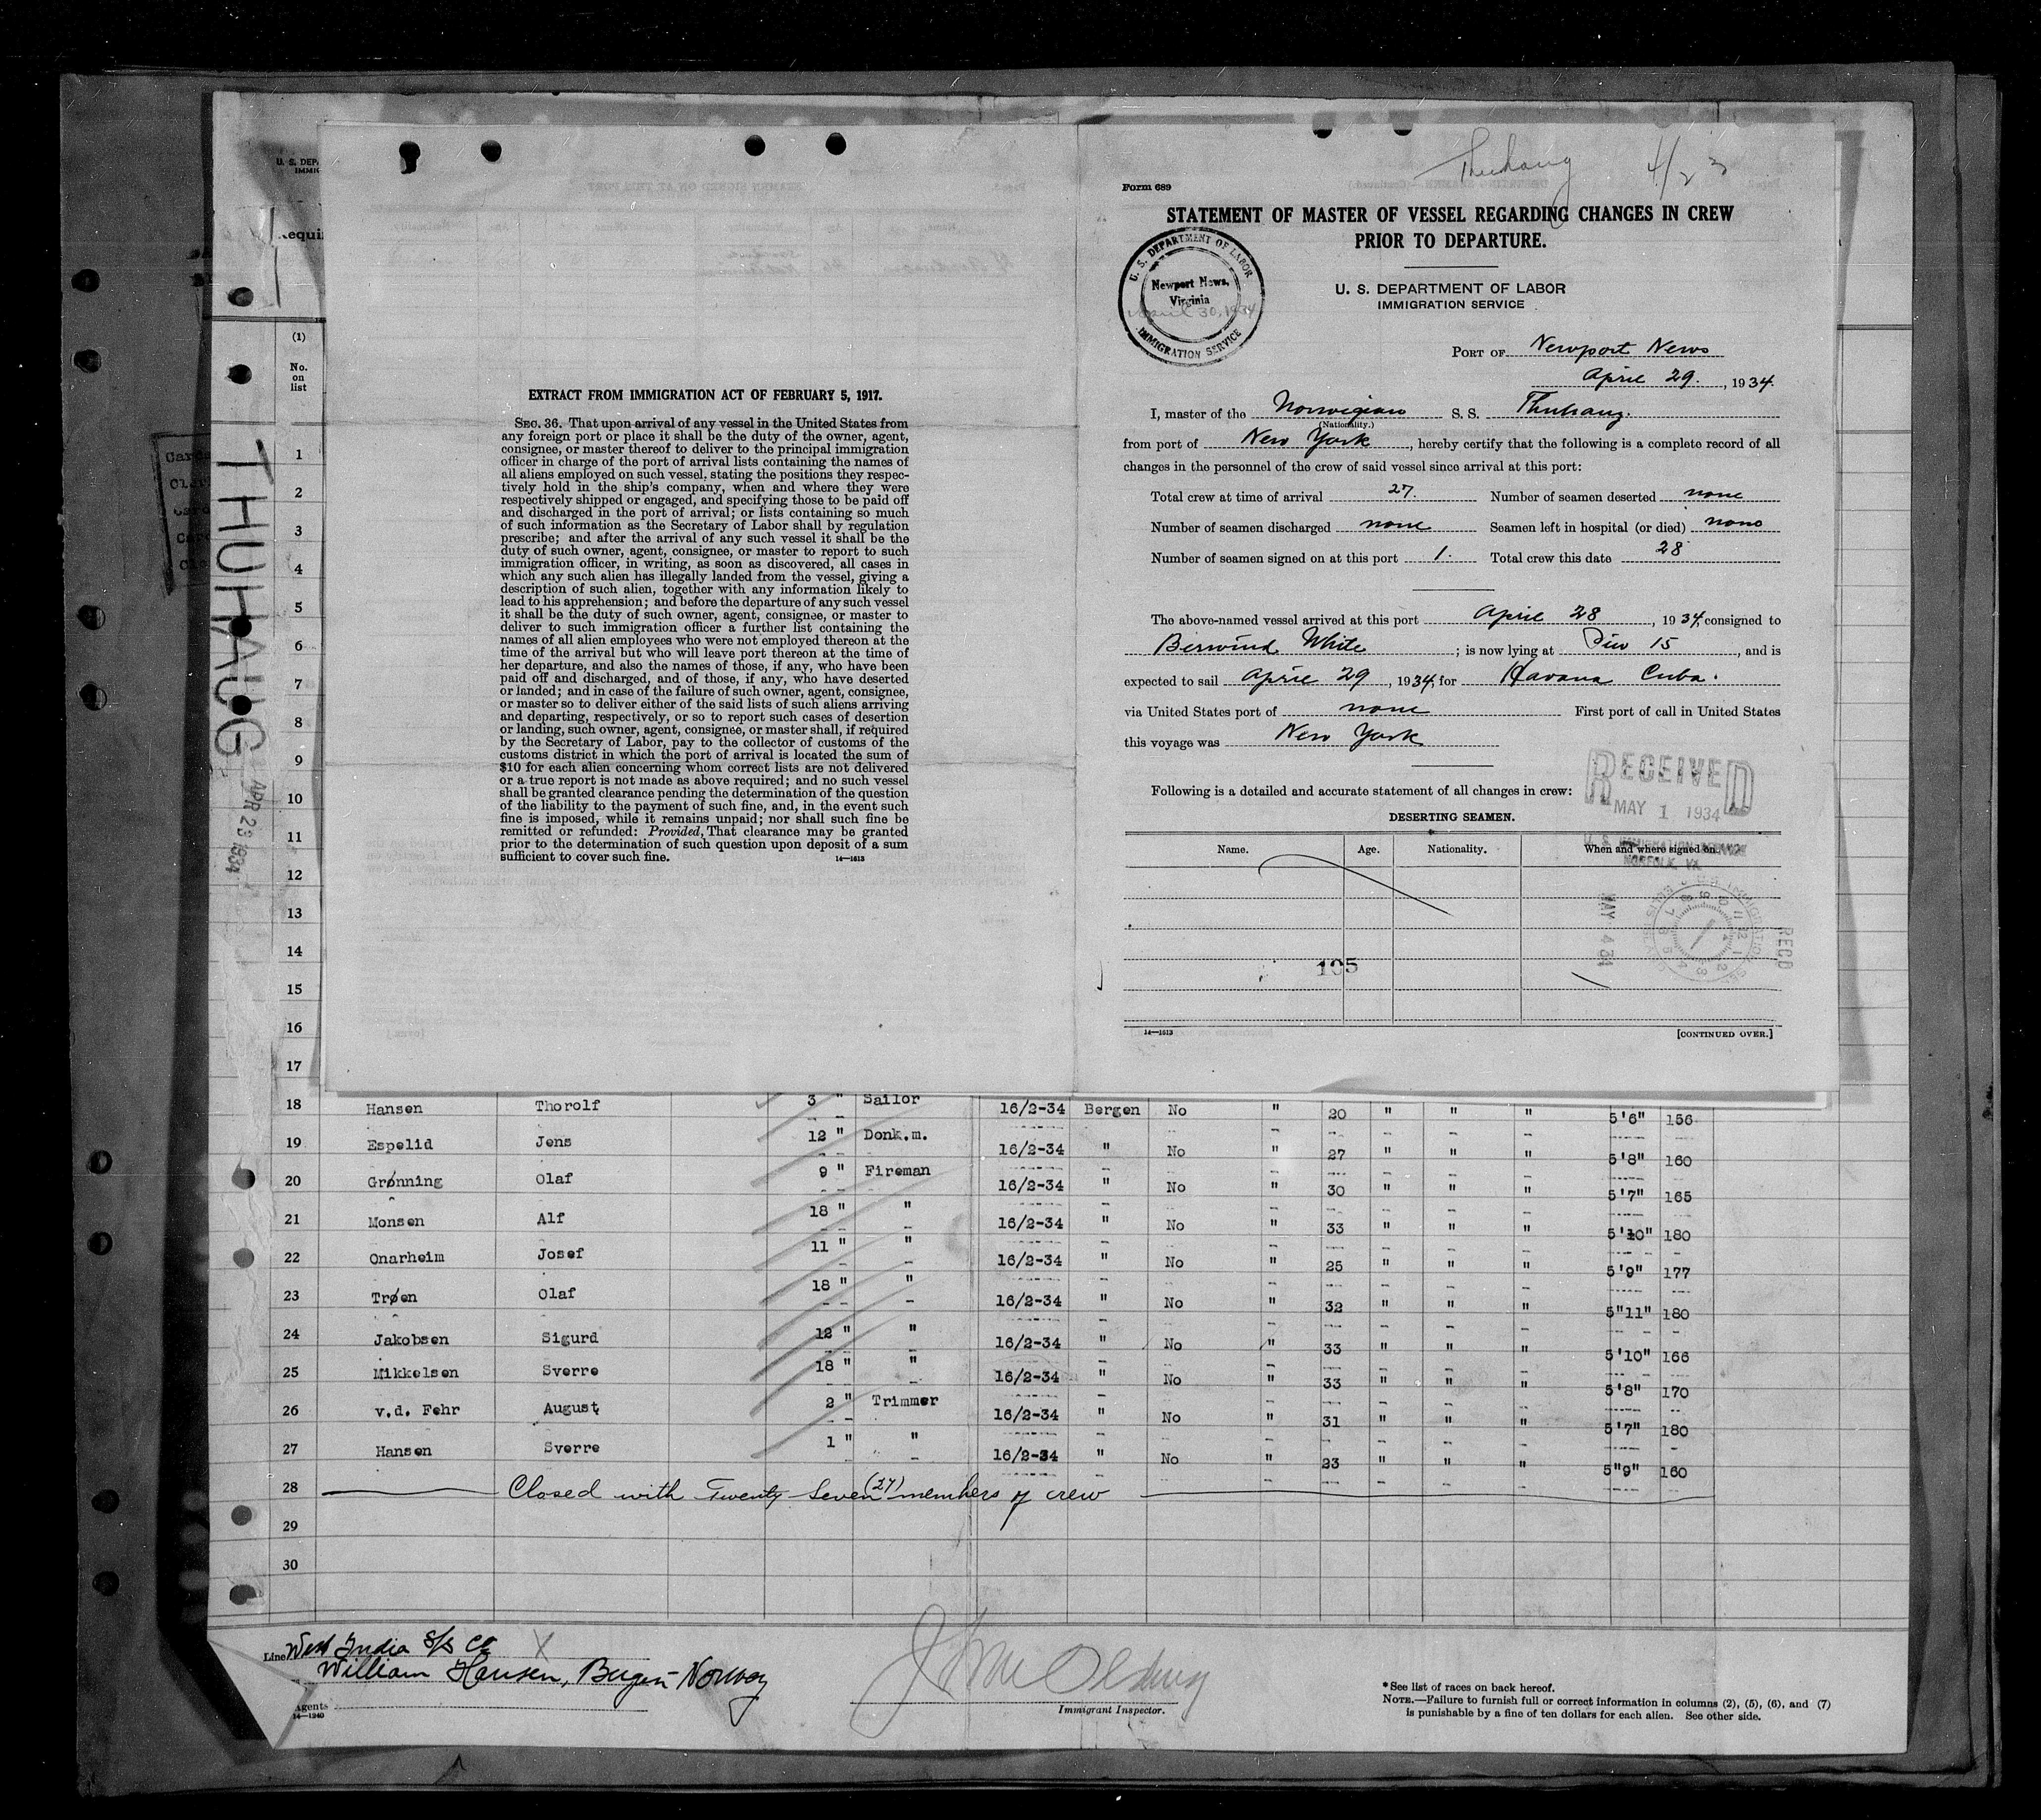 U. S. DEPA
IMMIG
equi
(1)
No.
on
list
THUHAUG
APR 23 1934
1
2
3
4
5
6
7
8
9
10
11
12
13
14
15
16
17
EXTRACT FROM IMMIGRATION ACT OF FEBRUARY 5, 1917.
SEC. 36. That upon arrival of any vessel in the United States from
any foreign port or place it shall be the duty of the owner, agent,
consignee, or master thereof to deliver to the principal immigration
officer in charge of the port of arrival lists containing the names of
all aliens employed on such vessel, stating the positions they respec-
tively hold in the ship's company, when and where they were
respectively shipped or engaged, and specifying those to be paid off
and discharged in the port of arrival; or lists containing so much
of such information as the Secretary of Labor shall by regulation
prescribe; and after the arrival of any such vessel it shall be the
duty of such owner, agent, consignee, or master to report to such
immigration officer, in writing, as soon as discovered, all cases in
which any such alien has illegally landed from the vessel, giving a
description of such alien, together with any information likely to
lead to his apprehension; and before the departure of any such vessel
it shall be the duty of such owner, agent, consignee, or master to
deliver to such immigration officer a further list containing the
names of all alien employees who were not employed thereon at the
time of the arrival but who will leave port thereon at the time of
her departure, and also the names of those, if any, who have been
paid off and discharged, and of those, if any, who have deserted
or landed; and in case of the failure of such owner, agent, consignee,
or master so to deliver either of the said lists of such aliens arriving
and departing, respectively, or so to report such cases of desertion
or landing, such owner, agent, consignee, or master shall, if required
by the Secretary of Labor, pay to the collector of customs of the
customs district in which the port of arrival is located the sum of
$10 for each alien concerning whom correct lists are not delivered
or a true report is not made as above required; and no such vessel
shall be granted clearance pending the determination of the question
of the liability to the payment of such fine, and, in the event such
fine is imposed, while it remains unpaid; nor shall such fine be
remitted or refunded: Provided, That clearance may be granted
prior to the determination of such question upon deposit of a sum
sufficient to cover such fine. 14—1613
Thuhaug 4/23
Form 689
STATEMENT OF MASTER OF VESSEL REGARDING CHANGES IN CREW
PRIOR TO DEPARTURE.
U. S. DEPARTMENT OF LABOR
IMMIGRATION SERVICE
U. S. DEPARTMENT OF LABOR
Newport News,
Virginia
April 30, 1934
IMMIGRATION SERVICE
PORT OF Newport News
April 29. , 1934.
I, master of the Norwegian S. S. Thuhaug.
(Nationality.)
from port of New York , hereby certify that the following is a complete record of all
changes in the personnel of the crew of said vessel since arrival at this port:
Total crew at time of arrival 27. Number of seamen deserted none
Number of seamen discharged none Seamen left in hospital (or died) none
Number of seamen signed on at this port 1. Total crew this date 28
The above-named vessel arrived at this port April 28 , 1934, consigned to
Berwind White ; is now lying at Pier 15 , and is
expected to sail April 29 , 1934, for Havana Cuba.
via United States port of none First port of call in United States
this voyage was New York
RECEIVED
MAY 1 1934
U. S. IMMIGRATION SERVICE
NORFOLK, VA.
Following is a detailed and accurate statement of all changes in crew:
DESERTING SEAMEN.
Name. Age. Nationality. When and where signed on.
MAY 4 34
RECD
105
14—1613 [CONTINUED OVER.]
18 Hansen Thorolf 3 " Sailor 16/2-34 Bergen No " 20 " " " 5'6" 156
19 Espelid Jens 12 " Donk.m. 16/2-34 " No " 27 " " " 5'8" 160
20 Grønning Olaf 9 " Fireman 16/2-34 " No " 30 " " " 5'7" 165
21 Monsen Alf 18 " " 16/2-34 " No " 33 " " " 5'10" 180
22 Onarheim Josef 11 " " 16/2-34 " No " 25 " " " 5'9" 177
23 Trøen Olaf 18 " " 16/2-34 " No " 32 " " " 5"11" 180
24 Jakobsen Sigurd 12 " " 16/2-34 " No " 33 " " " 5'10" 166
25 Mikkelsen Sverre 18 " " 16/2-34 " No " 33 " " " 5'8" 170
26 v.d. Fehr August 2 " Trimmer 16/2-34 " No " 31 " " " 5'7" 180
27 Hansen Sverre 1 " " 16/2-34 " No " 23 " " " 5"9" 160
28 Closed with Twenty Seven (27) members of crew
29
30
Line West India S/S Co X
William Hansen, Bergen Norway
Agents
14—1240
Immigrant Inspector.
*See list of races on back hereof.
NOTE.—Failure to furnish full or correct information in columns (2), (5), (6), and (7)
is punishable by a fine of ten dollars for each alien. See other side.